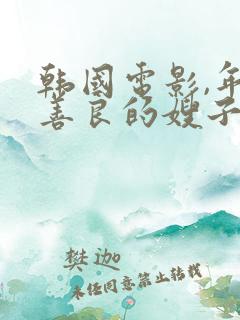 韩国电影,年
善良的嫂子
樊迦
未经同意禁止转载